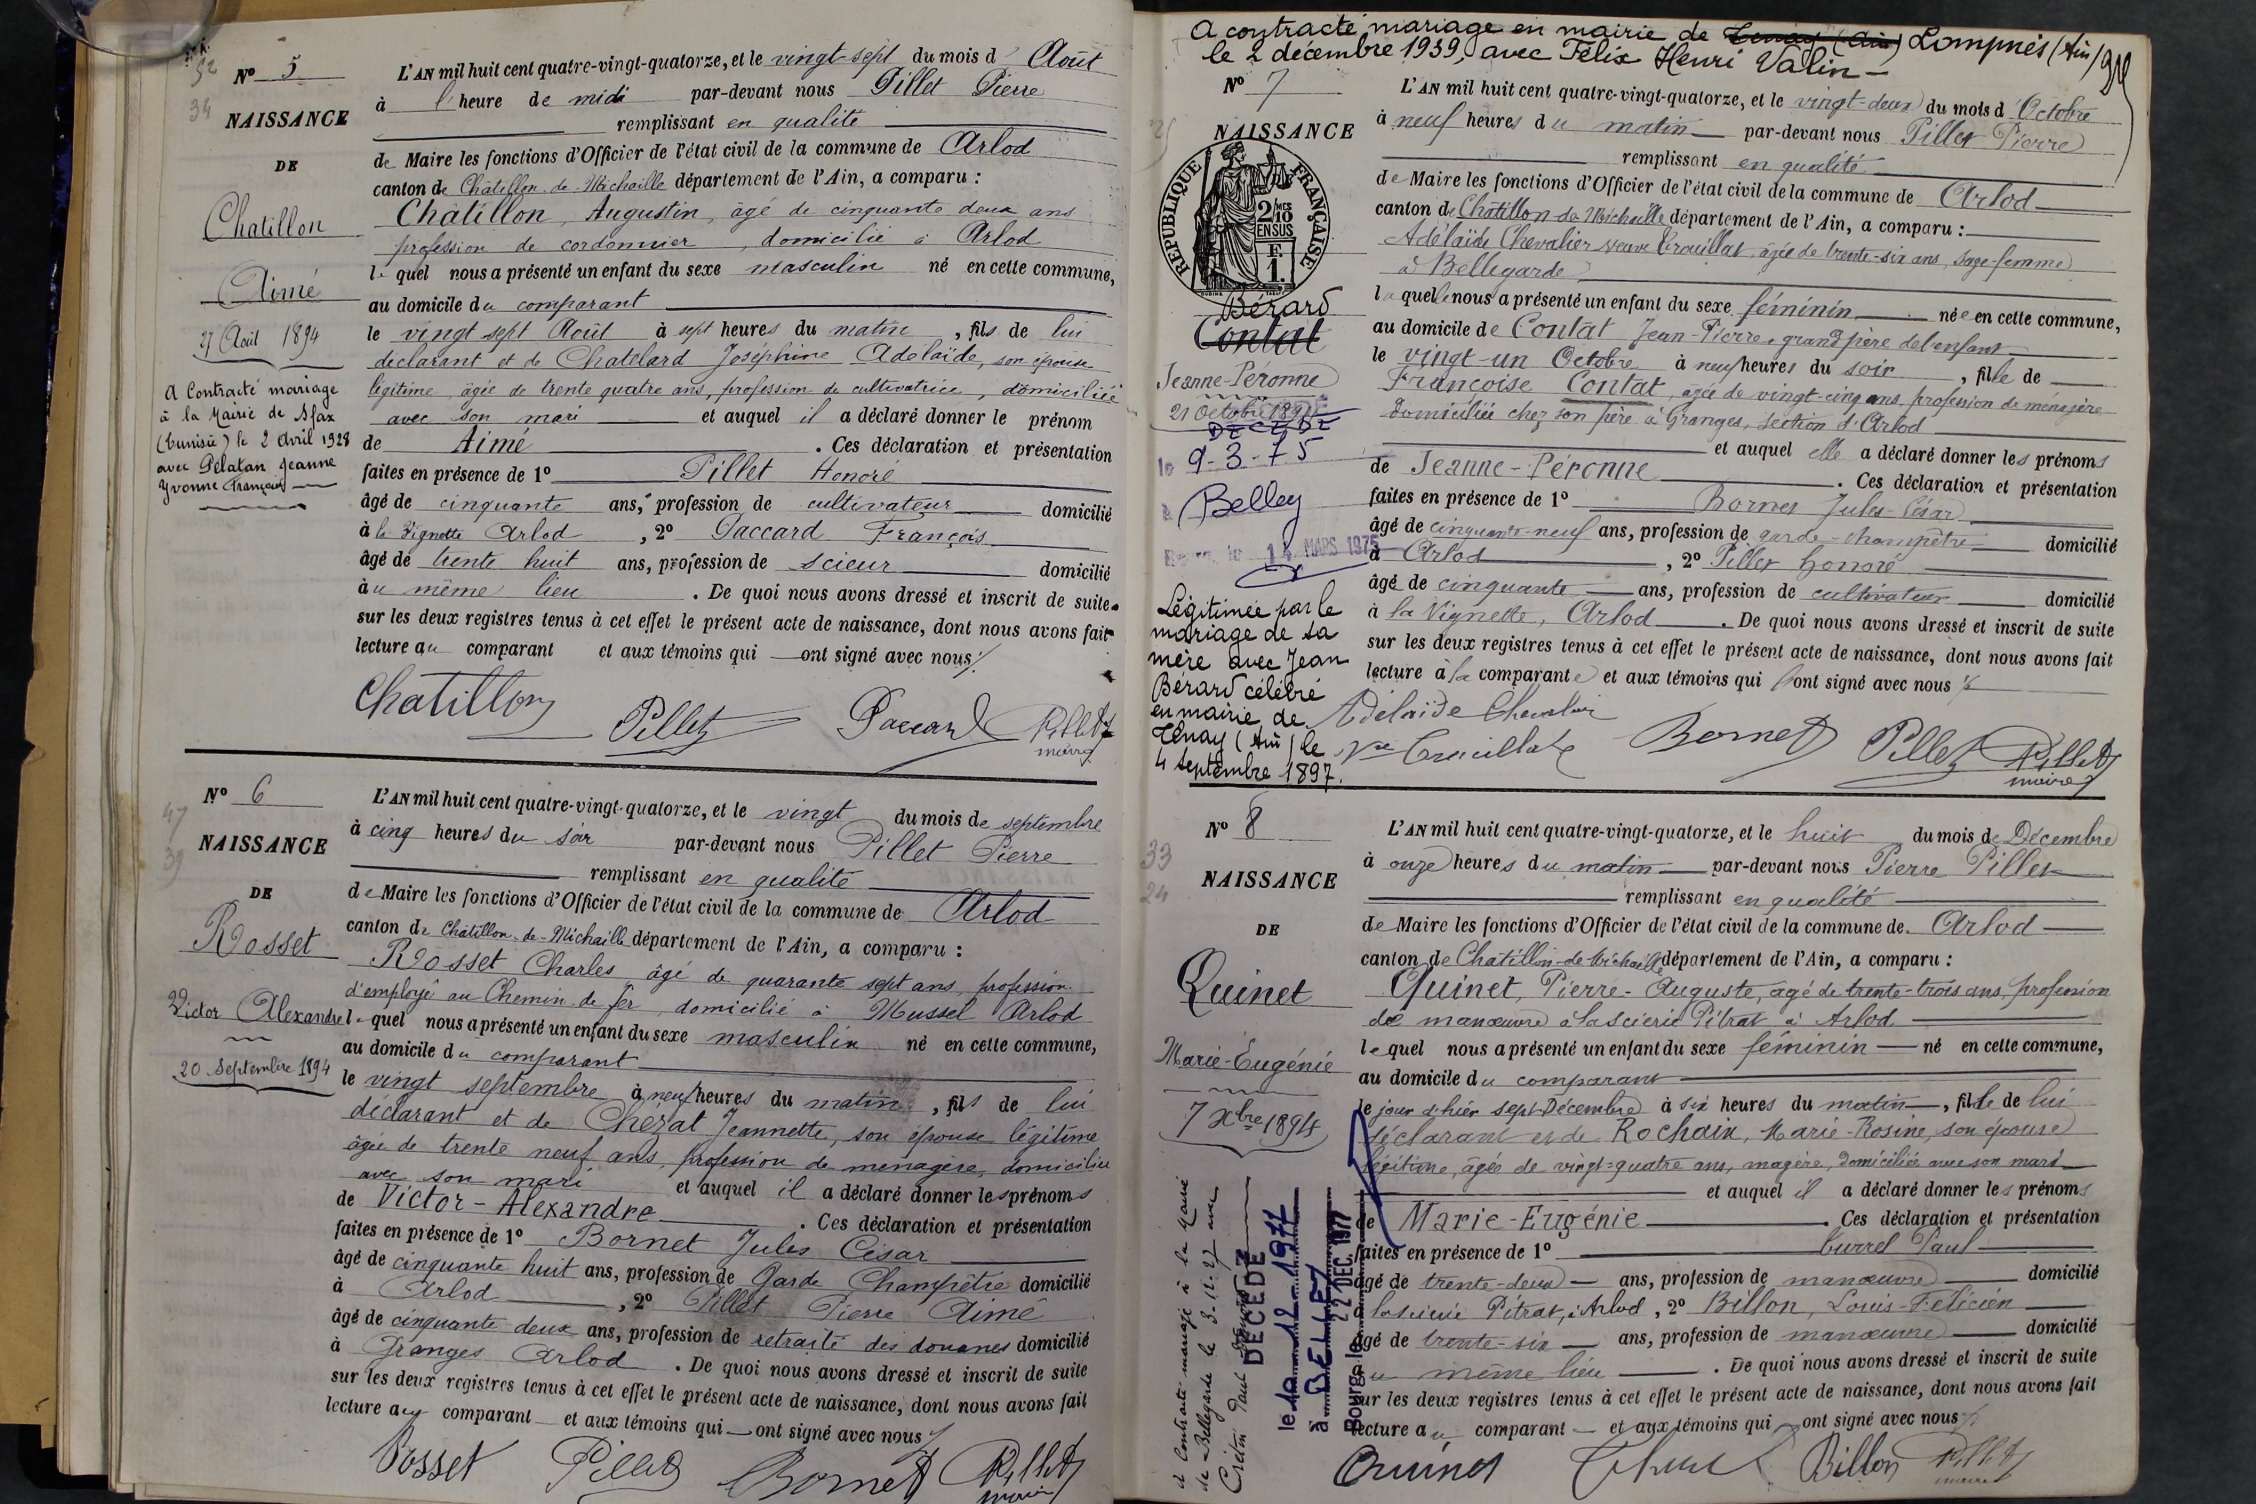 52
34
Nº 5
NAISSANCE
DE
Chatillon
Aimé
27 Août 1894
A Contracté mariage
à la Mairie de Sfax
(Tunisie) le 2 Avril 1928
avec Pélatan Jeanne
Yvonne Françoise
L'AN mil huit cent quatre-vingt-quatorze, et le vingt-sept du mois d' Août
à l'heure de midi par-devant nous Pillet Pierre
remplissant en qualité
de Maire les fonctions d'Officier de l'état civil de la commune de Arlod
canton de Châtillon-de-Michaille département de l'Ain, a comparu :
Châtillon, Augustin, âgé de cinquante deux ans
profession de cordonnier, domicilié à Arlod
le quel nous a présenté un enfant du sexe masculin né en cette commune,
au domicile du comparant
le vingt sept Août à sept heures du matin, fils de lui
déclarant et de Chatelard Joséphine Adélaïde, son épouse
légitime, âgée de trente quatre ans, profession de cultivatrice, domiciliée
avec son mari et auquel il a déclaré donner le prénom
de Aimé. Ces déclaration et présentation
faites en présence de 1º Pillet Honoré
âgé de cinquante ans, profession de cultivateur domicilié
à la Vignette Arlod, 2º Paccard François
âgé de trente huit ans, profession de scieur domicilié
au même lieu. De quoi nous avons dressé et inscrit de suite
sur les deux registres tenus à cet effet le présent acte de naissance, dont nous avons fait
lecture au comparant et aux témoins qui ont signé avec nous
Chatillon Pillet Paccard Pillet
maire
47
39
Nº 6
NAISSANCE
DE
Rosset
Victor Alexandre
20 Septembre 1894
L'AN mil huit cent quatre-vingt-quatorze, et le vingt du mois de septembre
à cinq heures du soir par-devant nous Pillet Pierre
remplissant en qualité
de Maire les fonctions d'Officier de l'état civil de la commune de Arlod
canton de Châtillon-de-Michaille département de l'Ain, a comparu :
Rosset Charles âgé de quarante sept ans, profession
d'employé au Chemin de fer, domicilié à Mussel Arlod
le quel nous a présenté un enfant du sexe masculin né en cette commune,
au domicile du comparant
le vingt septembre à neuf heures du matin, fils de lui
déclarant et de Chezat Jeannette, son épouse légitime
âgée de trente neuf ans, profession de ménagère, domiciliée
avec son mari et auquel il a déclaré donner les prénoms
de Victor-Alexandre. Ces déclaration et présentation
faites en présence de 1º Bornet Jules César
âgé de cinquante huit ans, profession de Garde Champêtre domicilié
à Arlod, 2º Pillet Pierre Aimé
âgé de cinquante deux ans, profession de retraité des douanes domicilié
à Granges Arlod. De quoi nous avons dressé et inscrit de suite
sur les deux registres tenus à cet effet le présent acte de naissance, dont nous avons fait
lecture au comparant et aux témoins qui ont signé avec nous
Rosset Pillet Bornet Pillet
maire
A contracté mariage en mairie de Tenay (Ain) Lompnès (Ain)
le 2 décembre 1939, avec Félix Henri Valin
Nº 7
NAISSANCE
REPUBLIQUE FRANÇAISE
2/10 MES
EN SUS
F.
1.
Bérard
Contat
Jeanne-Péronne
21 Octobre 1894
DÉCÉDÉE
le 9-3-75
à Belley
14 MARS 1975
Légitimée par le
mariage de sa
mère avec Jean
Bérard célébré
en mairie de
Tenay (Ain) le
4 septembre 1897.
L'AN mil huit cent quatre-vingt-quatorze, et le vingt-deux du mois d' Octobre
à neuf heures du matin par-devant nous Pillet Pierre
remplissant en qualité
de Maire les fonctions d'Officier de l'état civil de la commune de Arlod
canton de Châtillon-de-Michaille département de l'Ain, a comparu :
Adélaïde Chevalier veuve Crouillat, âgée de trente-six ans, sage-femme
à Bellegarde
laquelle nous a présenté un enfant du sexe féminin née en cette commune,
au domicile de Contat Jean-Pierre, grand père de l'enfant
le vingt-un Octobre à neuf heures du soir, fille de
Françoise Contat, âgée de vingt-cinq ans, profession de ménagère
domiciliée chez son père à Granges, section d'Arlod
et auquel elle a déclaré donner les prénoms
de Jeanne-Péronne. Ces déclaration et présentation
faites en présence de 1º Bornet Jules-César
âgé de cinquante-neuf ans, profession de garde-champêtre domicilié
à Arlod, 2º Pillet honoré
âgé de cinquante ans, profession de cultivateur domicilié
à la Vignette, Arlod. De quoi nous avons dressé et inscrit de suite
sur les deux registres tenus à cet effet le présent acte de naissance, dont nous avons fait
lecture à la comparante et aux témoins qui ont signé avec nous
Adélaïde Chevalier
Vve Crouillat Bornet Pillet Pillet
maire
33
24
Nº 8
NAISSANCE
DE
Quinet
Marie-Eugénie
7 Xbre 1894
A Contracté mariage à la Mairie
de Bellegarde le 3-12-27 avec
Cretin Paul
DÉCÉDÉ
le 10-12-1977
à BELLEY
Bourg, le 22 DEC. 1977
L'AN mil huit cent quatre-vingt-quatorze, et le huit du mois de Décembre
à onze heures du matin par-devant nous Pierre Pillet
remplissant en qualité
de Maire les fonctions d'Officier de l'état civil de la commune de Arlod
canton de Châtillon-de-Michaille département de l'Ain, a comparu :
Quinet, Pierre-Auguste, âgé de trente-trois ans, profession
de manœuvre à la scierie Pétrat à Arlod
lequel nous a présenté un enfant du sexe féminin né en cette commune,
au domicile du comparant
le jour d'hier sept Décembre à six heures du matin, fille de lui
déclarant et de Rochaix, Marie-Rosine, son épouse
légitime, âgée de vingt-quatre ans, magère, domiciliée avec son mari
et auquel il a déclaré donner les prénoms
de Marie-Eugénie. Ces déclaration et présentation
faites en présence de 1º Currel Paul
âgé de trente-deux ans, profession de manœuvre domicilié
à la scierie Pétrat, à Arlod, 2º Billon, Louis-Félicien
âgé de trente-six ans, profession de manœuvre domicilié
au même lieu. De quoi nous avons dressé et inscrit de suite
sur les deux registres tenus à cet effet le présent acte de naissance, dont nous avons fait
lecture au comparant et aux témoins qui ont signé avec nous
Quinet Billon Pillet
maire